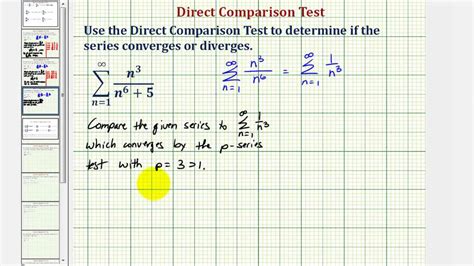 Direct Comparison Test
Use the Direct Comparison Test to determine if the
series converges or diverges.
∞ ∑ n=1 n³/(n⁶+5)
∞ ∑ n=1 n³/n⁶ = ∞ ∑ n=1 1/n³
Compare the given series to ∞ ∑ n=1 1/n³
which converges by the p-series
test with p=3>1.